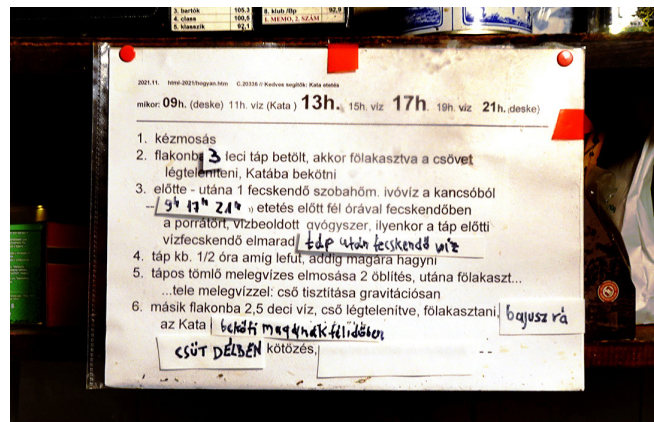 3. bartók 105,3
4. class 100,5
5. klasszik 92,1
8. klub /Bp 92,9
1. MEMO, 2. SZÁM
2021.11. html-2021/hogyan.htm C.20336 // Kedves segítők: Kata etetés
mikor: 09h. (deske) 11h. víz (Kata ) 13h. 15h. víz 17h. 19h. víz 21h. (deske)
1. kézmosás
2. flakonba 3 deci táp betölt, akkor fölakasztva a csövet
légteleníteni, Katába bekötni
3. előtte - utána 1 fecskendő szobahőm. ivóvíz a kancsóból
-- 9h 17h 21h , etetés előtt fél órával fecskendőben
a porrátört, vízbeoldott gyógyszer, ilyenkor a táp előtti
vízfecskendő elmarad táp után fecskendő víz
4. táp kb. 1/2 óra amíg lefut, addig magára hagyni
5. tápos tömlő melegvízes elmosása 2 öblítés, utána fölakaszt...
...tele melegvízzel: cső tisztítása gravitációsan
6. másik flakonba 2,5 deci víz, cső légtelenítve, fölakasztani, bajusz rá
az Kata beköti magának félidőben
CSÜT DÉLBEN kötözés, --